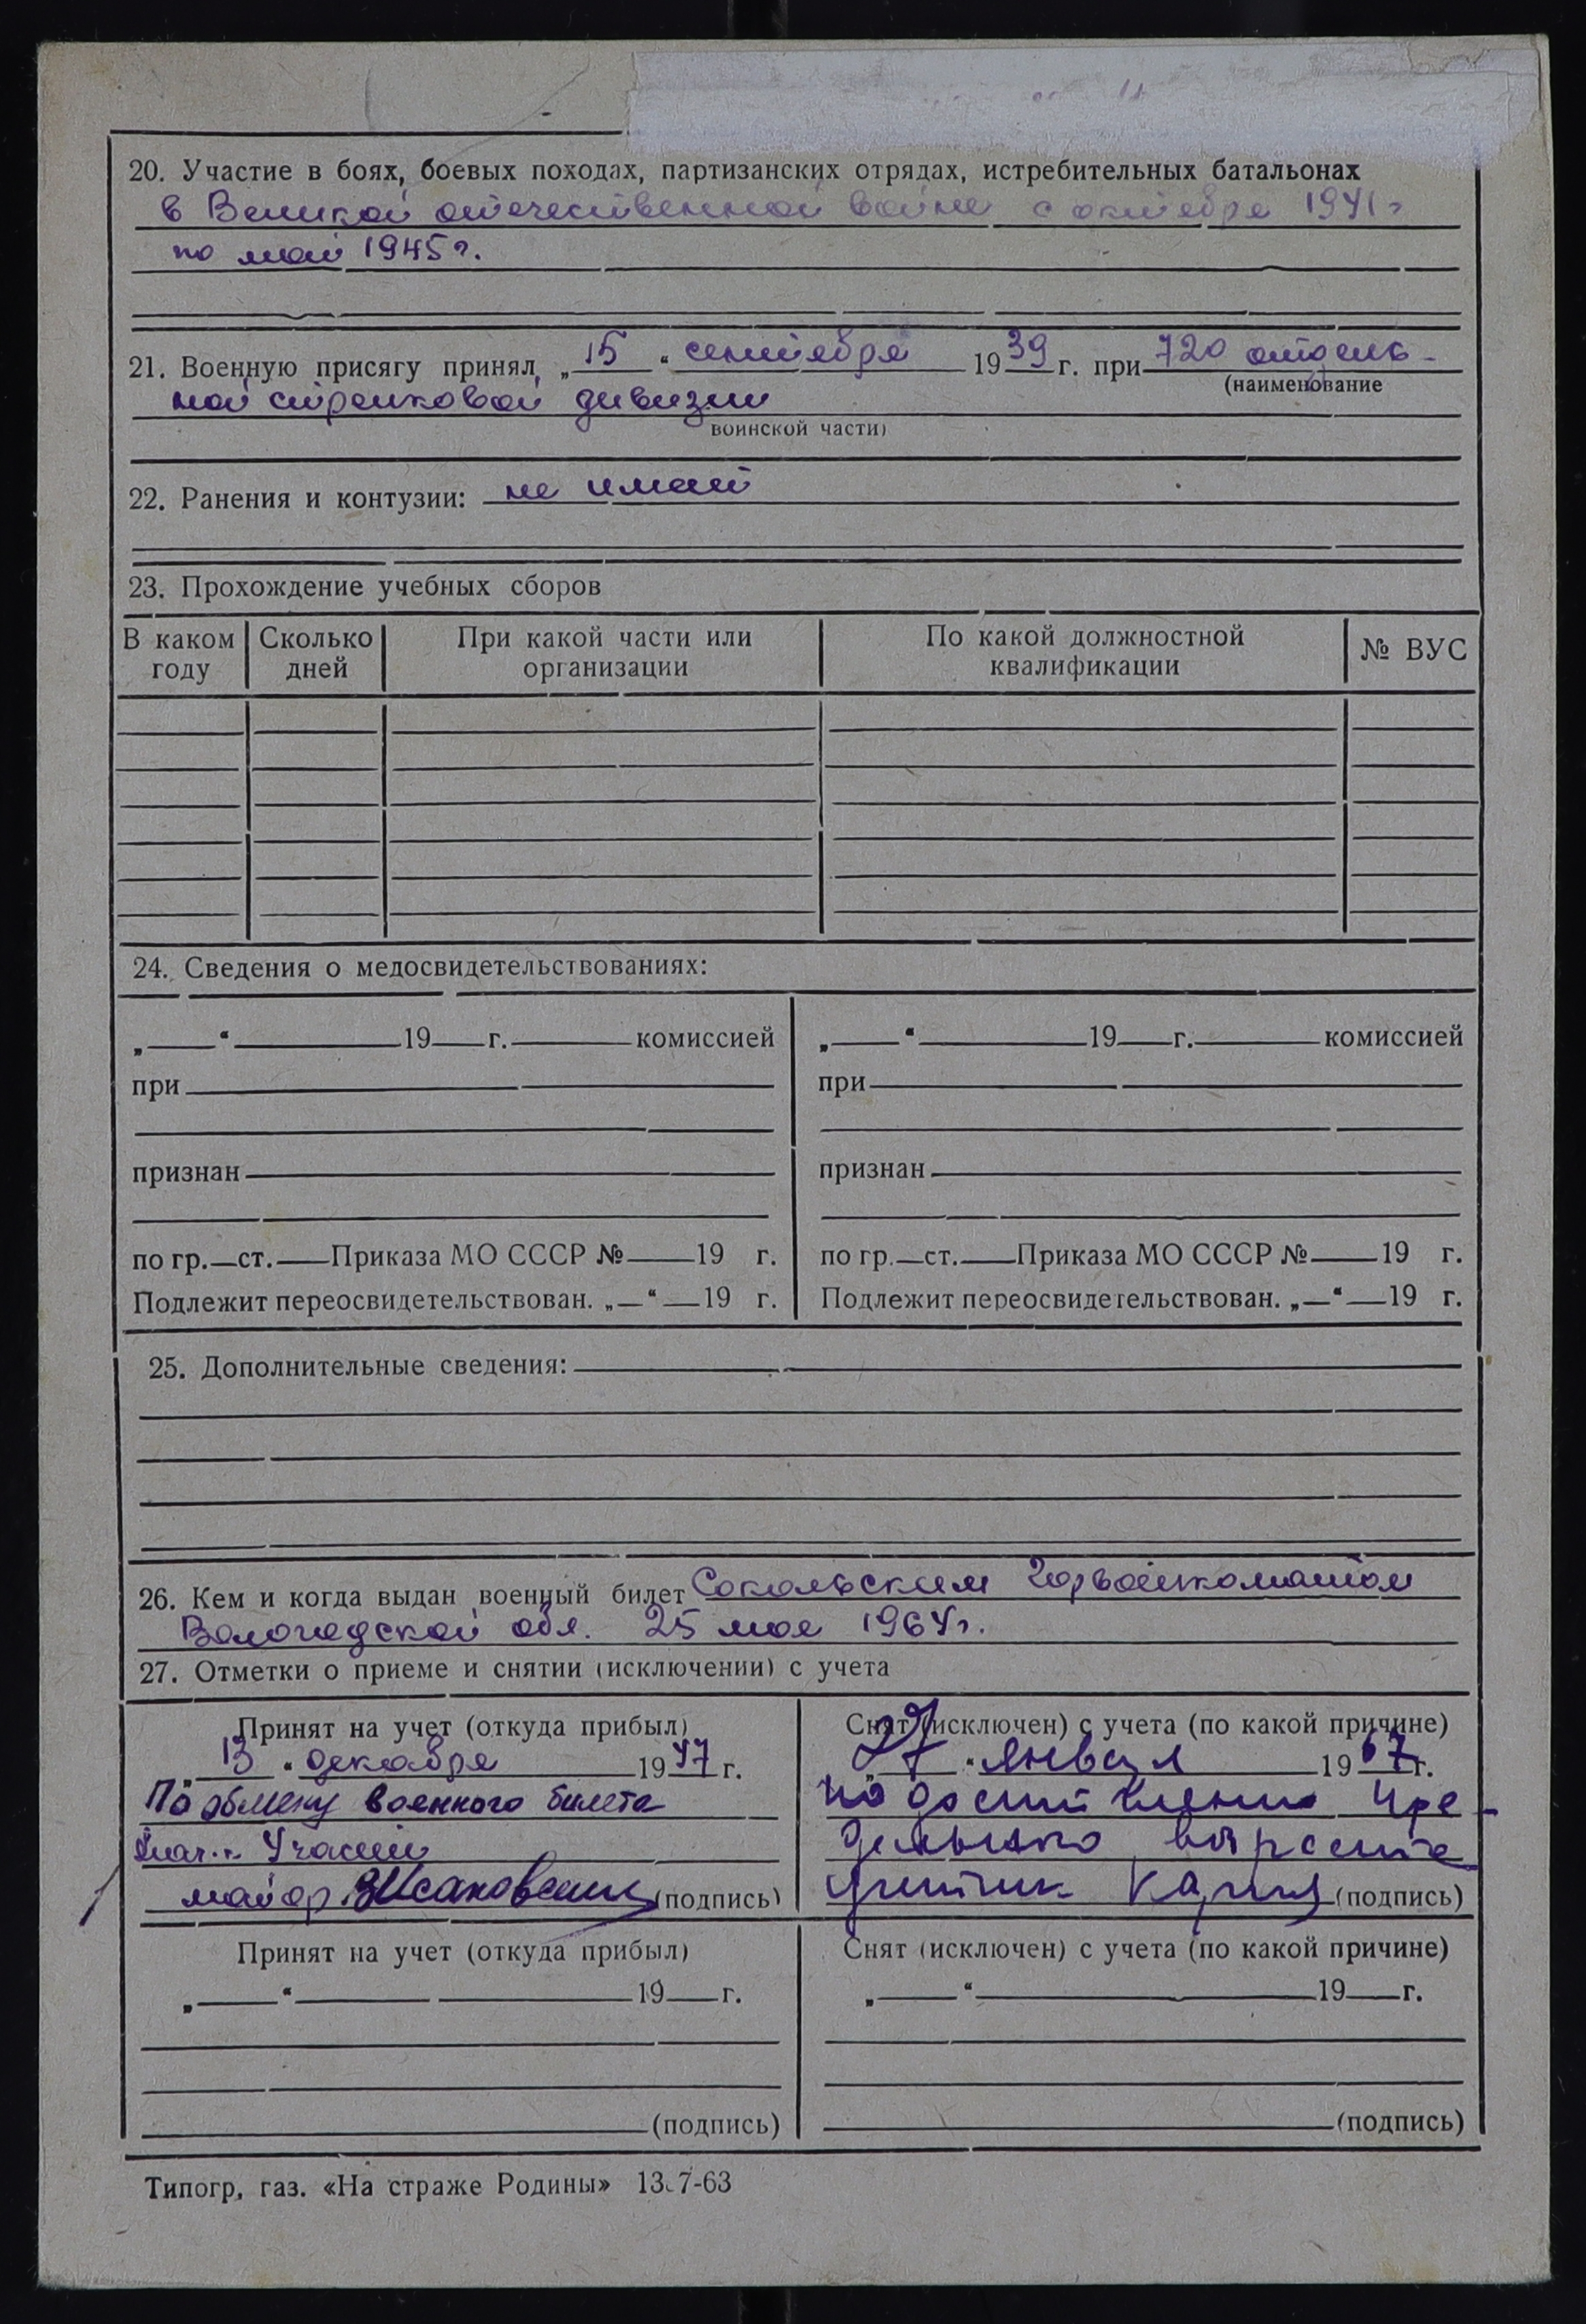 20. Участие в боях, боевых походах, партизанских отрядах, истребительных батальонах
в Великой отечественной войне с октября 1941 г
по май 1945 г.
21. Военную присягу принял „15“ сентября 1939 г. при 720 отдель-
(наименование
ной стрелковой дивизии
воинской части)
22. Ранения и контузии: не имеет
23. Прохождение учебных сборов
В каком году Сколько дней При какой части или организации По какой должностной квалификации № ВУС
24. Сведения о медосвидетельствованиях:
„ “ 19 г. комиссией
при
признан
по гр. ст. Приказа МО СССР № 19 г.
Подлежит переосвидетельствован. „ “ 19 г.
„ “ 19 г. комиссией
при
признан
по гр. ст. Приказа МО СССР № 19 г.
Подлежит переосвидетельствован. „ “ 19 г.
25. Дополнительные сведения:
26. Кем и когда выдан военный билет Сокольским Горвоенкоматом
Вологодской обл. 25 мая 1964 г.
27. Отметки о приеме и снятии (исключении) с учета
Принят на учет (откуда прибыл)
„13“ декабря 1947 г.
По обмену военного билета
Нач. Части
майор (подпись)
Снят (исключен) с учета (по какой причине)
„27“ января 1967 г.
по достижении пре-
дельного возраста
(подпись)
Принят на учет (откуда прибыл)
„ “ 19 г.
(подпись)
Снят (исключен) с учета (по какой причине)
„ “ 19 г.
(подпись)
Типогр, газ. «На страже Родины» 13.7-63